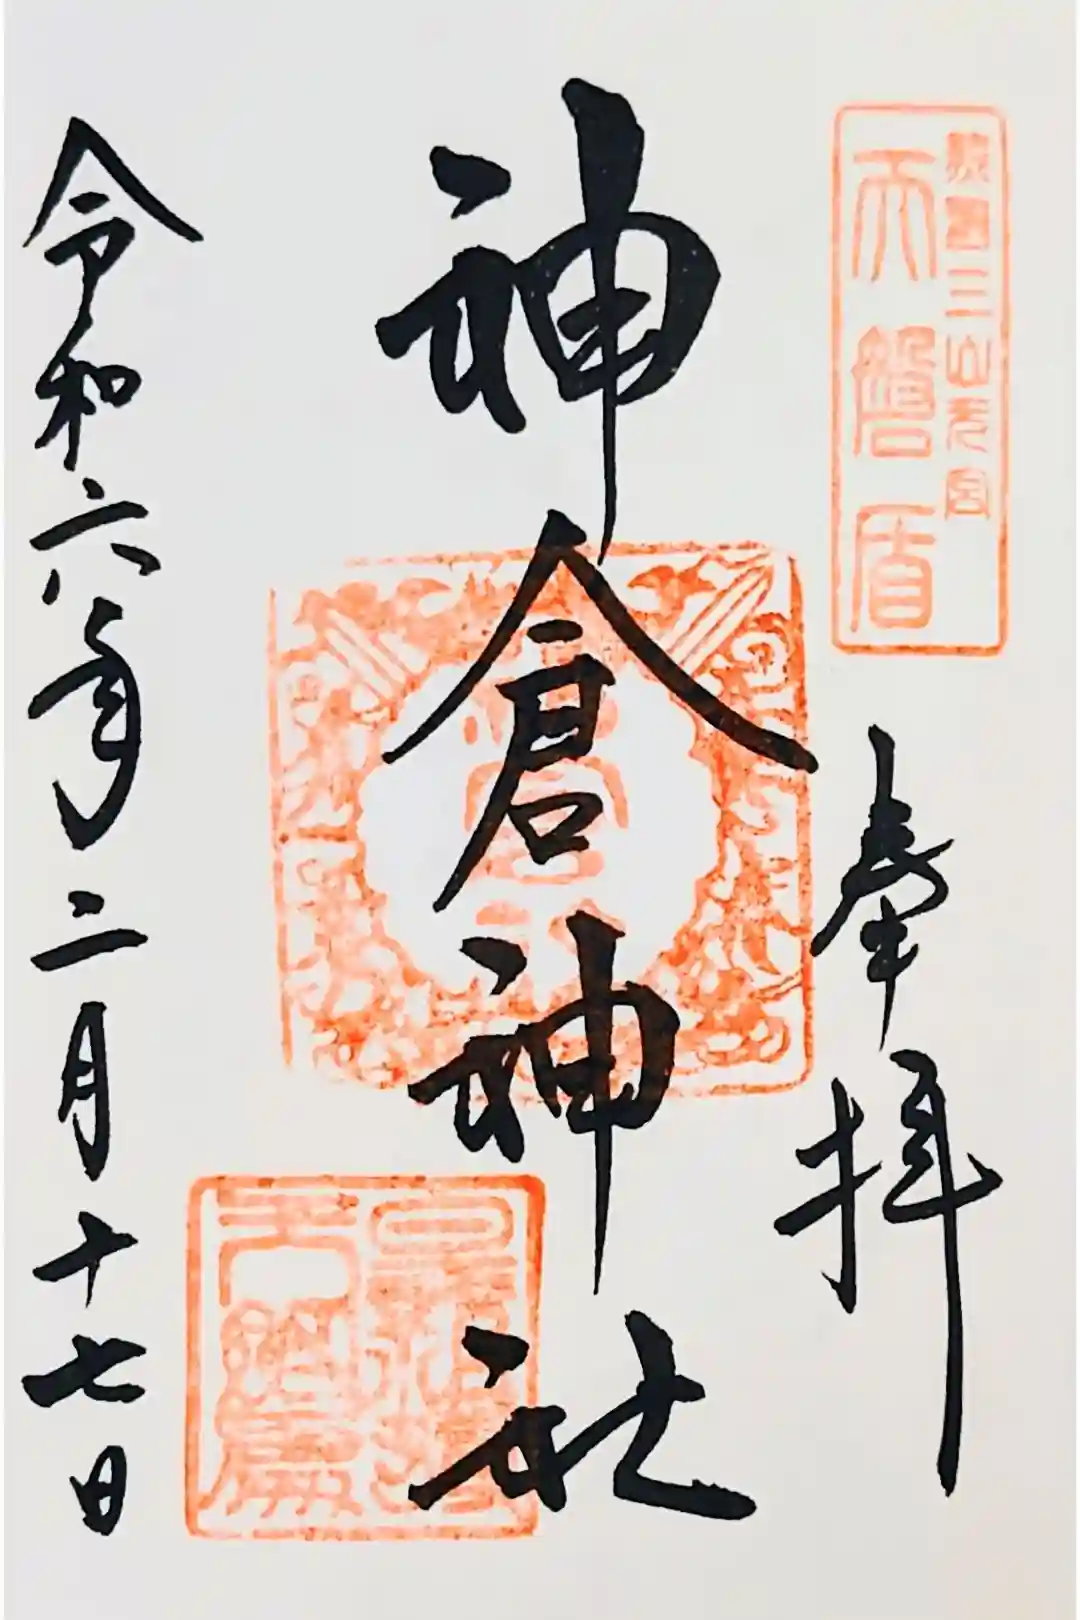 熊野三山元宮
天磐盾
奉拝
神倉神社
令和六年二月十七日